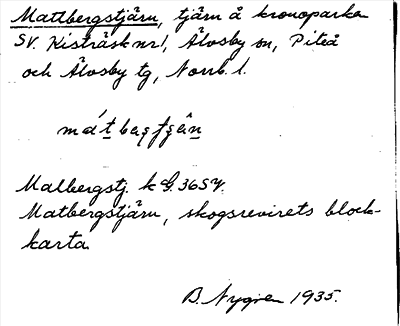 Mattbergstjärn, tjärn å kronoparken
SV. Kisträsk nr 1, Älvsby sn, Piteå
och Älvsby tg, Norrb. l.
Malbergstj. k G. 36 SV.
Matbergstjärn, skogsrevirets block-
karta
B. Nygren 1935.